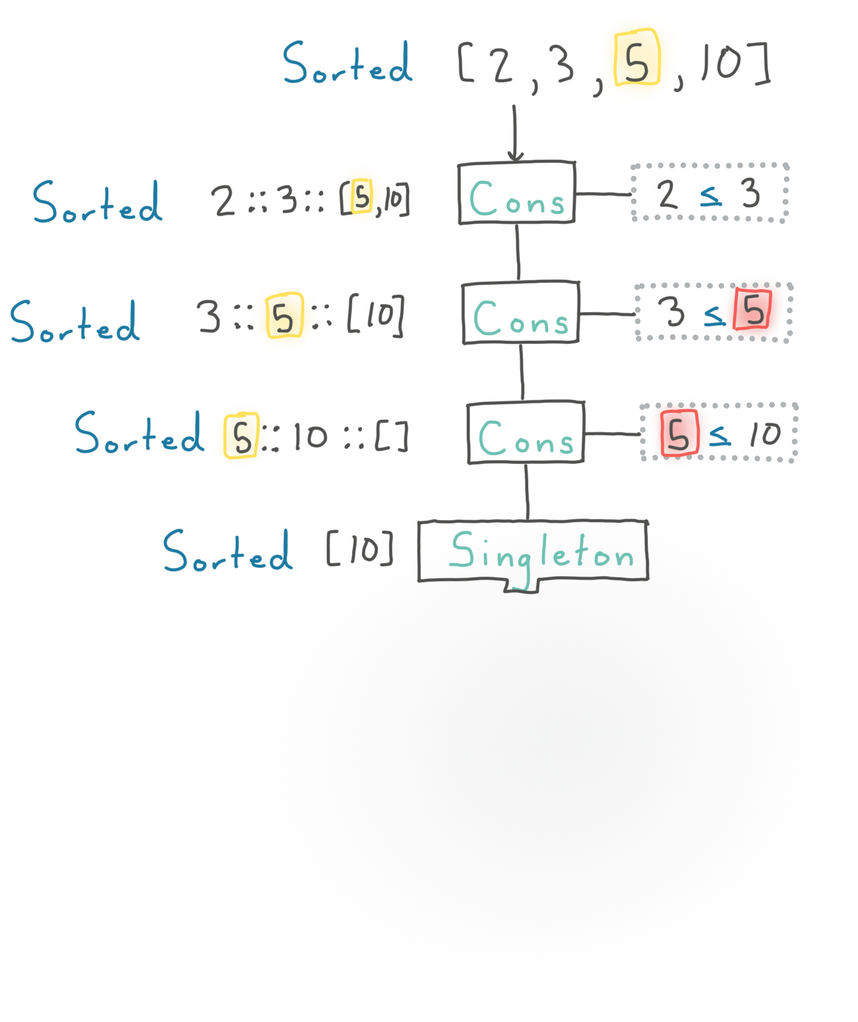 Sorted [2,3,5,10]
Sorted 2::3::[5,10] Cons 2 ≤ 3
Sorted 3::5::[10] Cons 3 ≤ 5
Sorted 5::10::[] Cons 5 ≤ 10
Sorted [10] Singleton